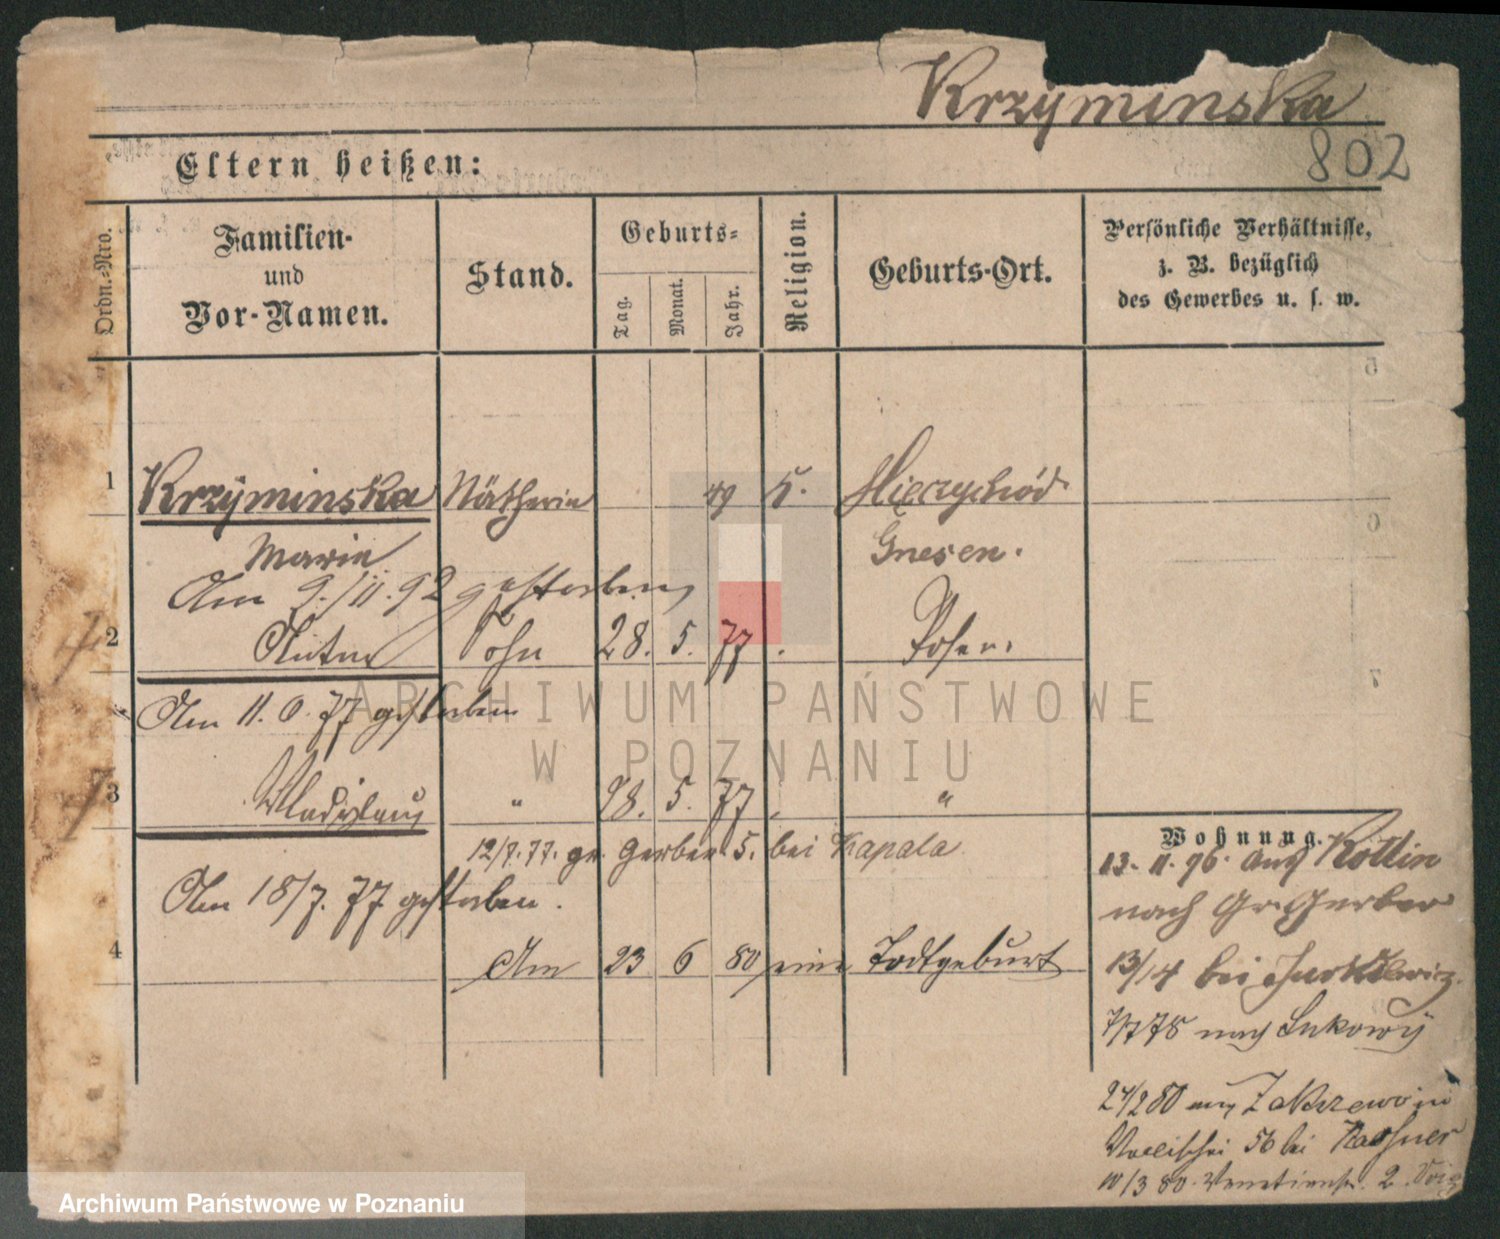 Krzyminska
802
Eltern heißen:
Ordn.-Nro.
Familien-
und
Vor-Namen.
Stand.
Geburts-
Tag.
Monat.
Jahr.
Religion.
Geburts-Ort.
Persönliche Verhältnisse,
z. B. bezüglich
des Gewerbes u. s. w.
1 Krzyminska Nätherin 49 k. Mięzychód
Marie Gnesen.
Am 9./11.92 gestorben
2 Sohn 28. 5. 77 Posen.
Am 11. 6. 77 gestorben
3 Vladislaus " 28. 5. 77 "
12/7.77. gr. Gerber 5. bei Kapala
Am 18/7. 77 gestorben.
4 Am 23 6 80 eine Todtgeburt
Wohnung.
13. 11. 76. aus Köllin
nach Gr. Gerber
13/14 bei
7/7 78 nach Lukowy
24/2 80 aus Zakrzewo in
Wallischei 56 bei
10/3 80. Venetianerstr. 2.
ARCHIWUM PAŃSTWOWE
W POZNANIU
Archiwum Państwowe w Poznaniu